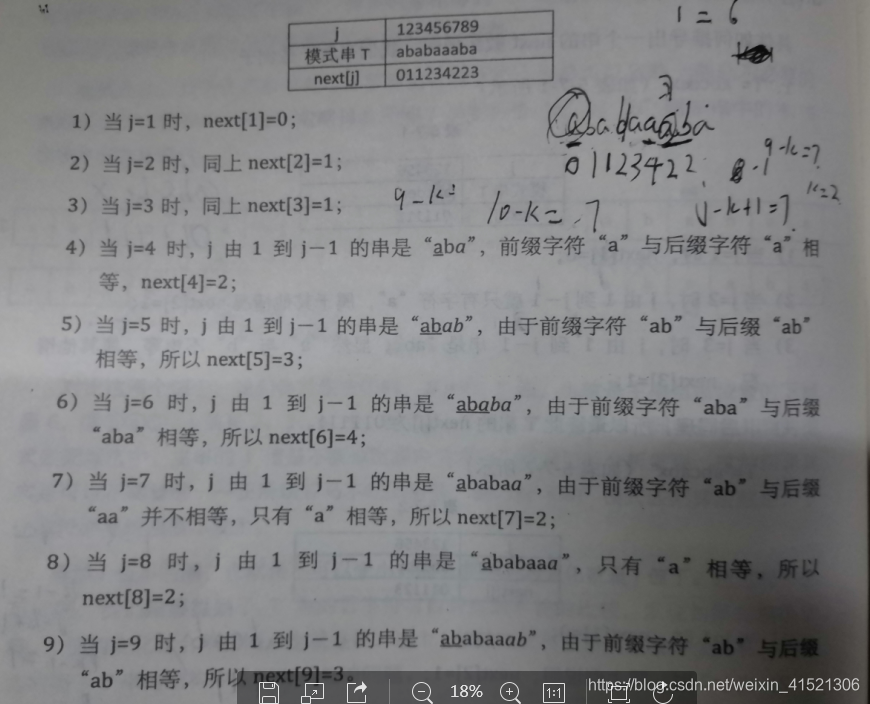 1 = 6
j 123456789
模式串 T ababaaaba
next[j] 011234223
1）当 j=1 时，next[1]=0；
01123422
2）当 j=2 时，同上 next[2]=1；
3）当 j=3 时，同上 next[3]=1；
9-k=
10-k=7
j-k+1=7
k=2
4）当 j=4 时，j 由 1 到 j－1 的串是“aba”，前缀字符“a”与后缀字符“a”相
等，next[4]=2；
5）当 j=5 时，j 由 1 到 j－1 的串是“abab”，由于前缀字符“ab”与后缀“ab”
相等，所以 next[5]=3；
6）当 j=6 时，j 由 1 到 j－1 的串是“ababa”，由于前缀字符“aba”与后缀
“aba”相等，所以 next[6]=4；
7）当 j=7 时，j 由 1 到 j－1 的串是“ababaa”，由于前缀字符“ab”与后缀
“aa”并不相等，只有“a”相等，所以 next[7]=2；
8）当 j=8 时，j 由 1 到 j－1 的串是“ababaaa”，只有“a”相等，所以
next[8]=2；
9）当 j=9 时，j 由 1 到 j－1 的串是“ababaaab”，由于前缀字符“ab”与后缀
“ab”相等，所以 next[9]=3。
18%
1:1
https://blog.csdn.net/weixin_41521306